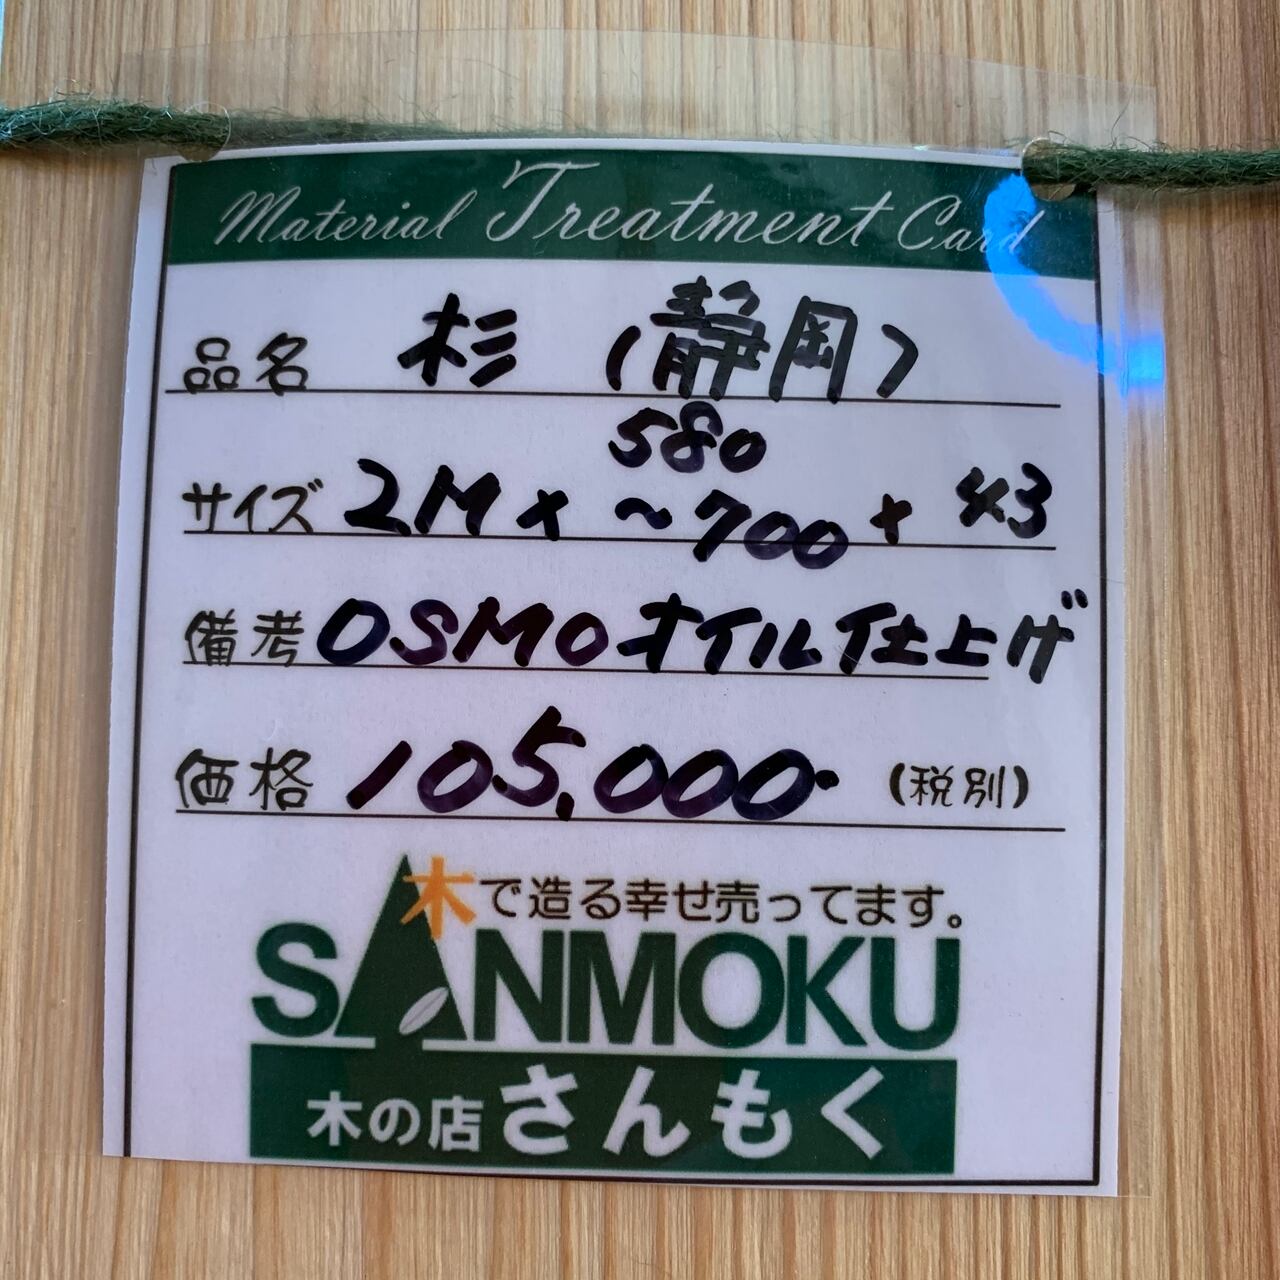 Material Treatment Card
品名 杉 (静岡)
580
サイズ 2M × ~700 × 43
備考 OSMOオイル仕上げ
価格 105,000- (税別)
木で造る幸せ売ってます。
SANMOKU
木の店 さんもく